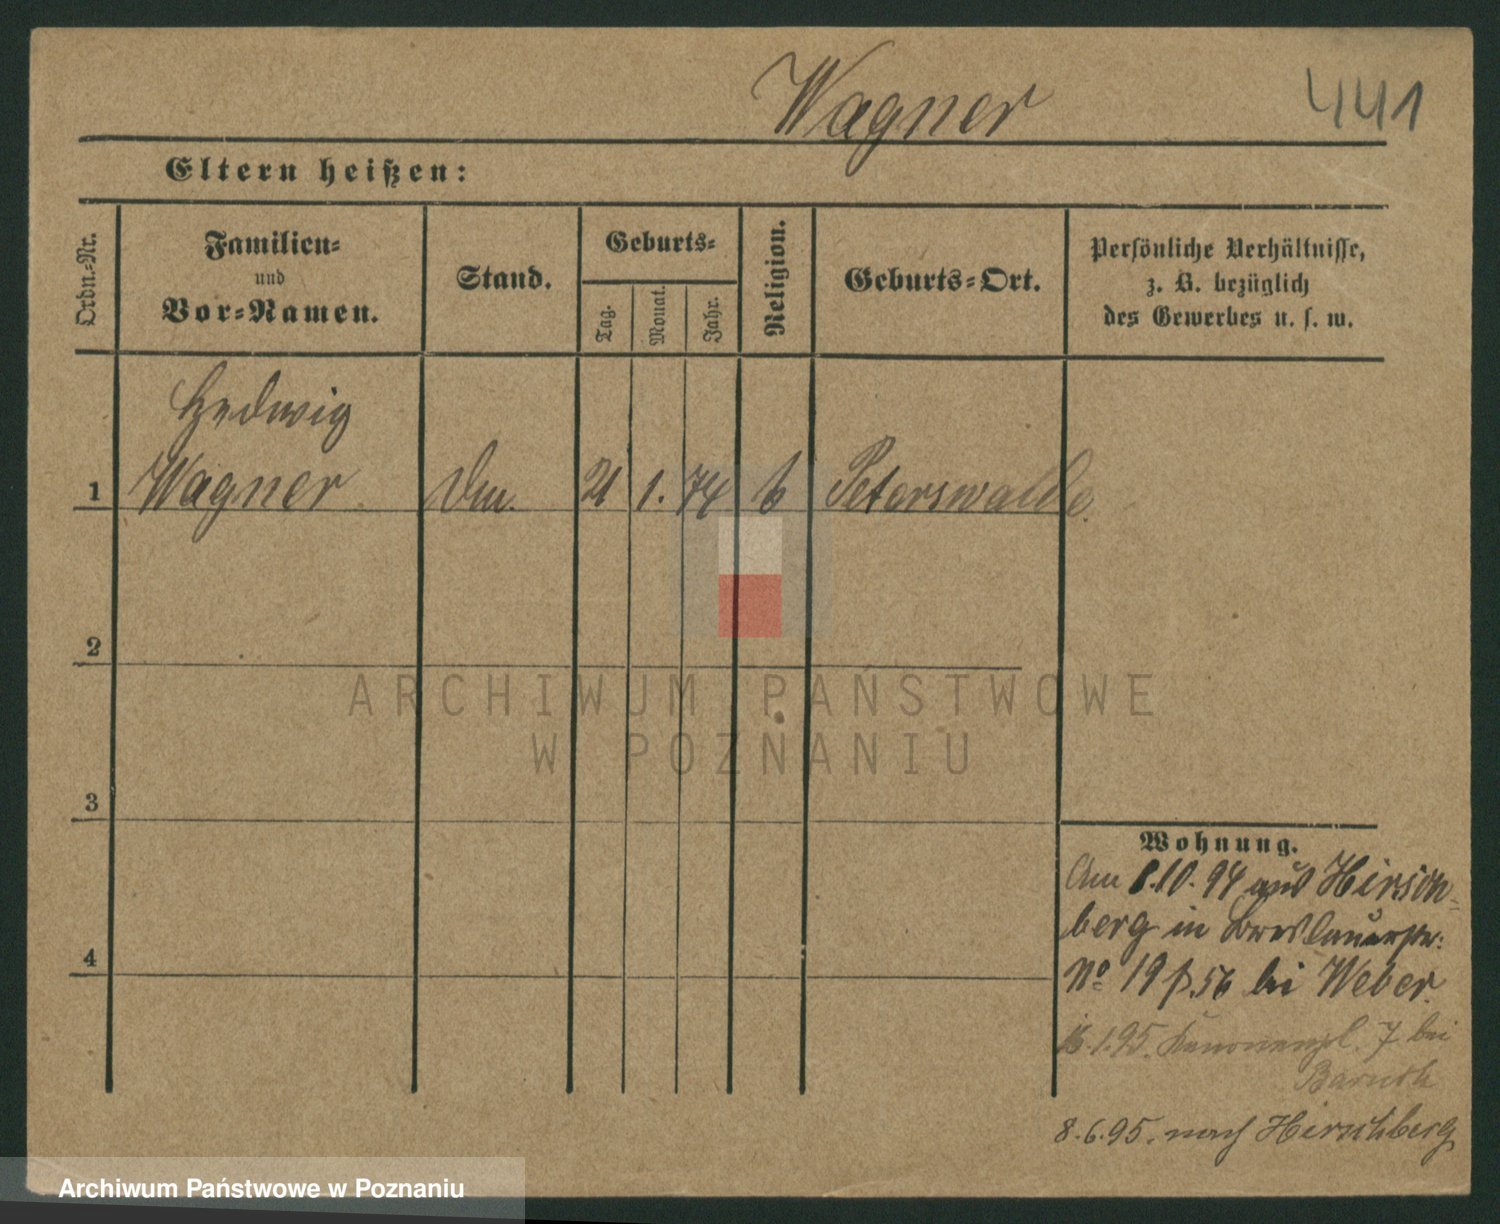 Wagner
441
Eltern heißen:
Ordn.-Nr.
Familien-
und
Vor-Namen.
Stand.
Geburts-
Tag.
Monat.
Jahr.
Religion.
Geburts-Ort.
Persönliche Verhältnisse,
z. B. bezüglich
des Gewerbes u. s. w.
Hedwig
1 Wagner 21 1. 74 Peterswalde.
2
3
4
Wohnung.
Am 8.10.94 aus Hirsch-
berg in Breslauerstr.
No 19 bei Weber.
.1.95. Kanonenpl. 7 bei
8.6.95. nach Hirschberg
ARCHIWUM PAŃSTWOWE
W POZNANIU
Archiwum Państwowe w Poznaniu